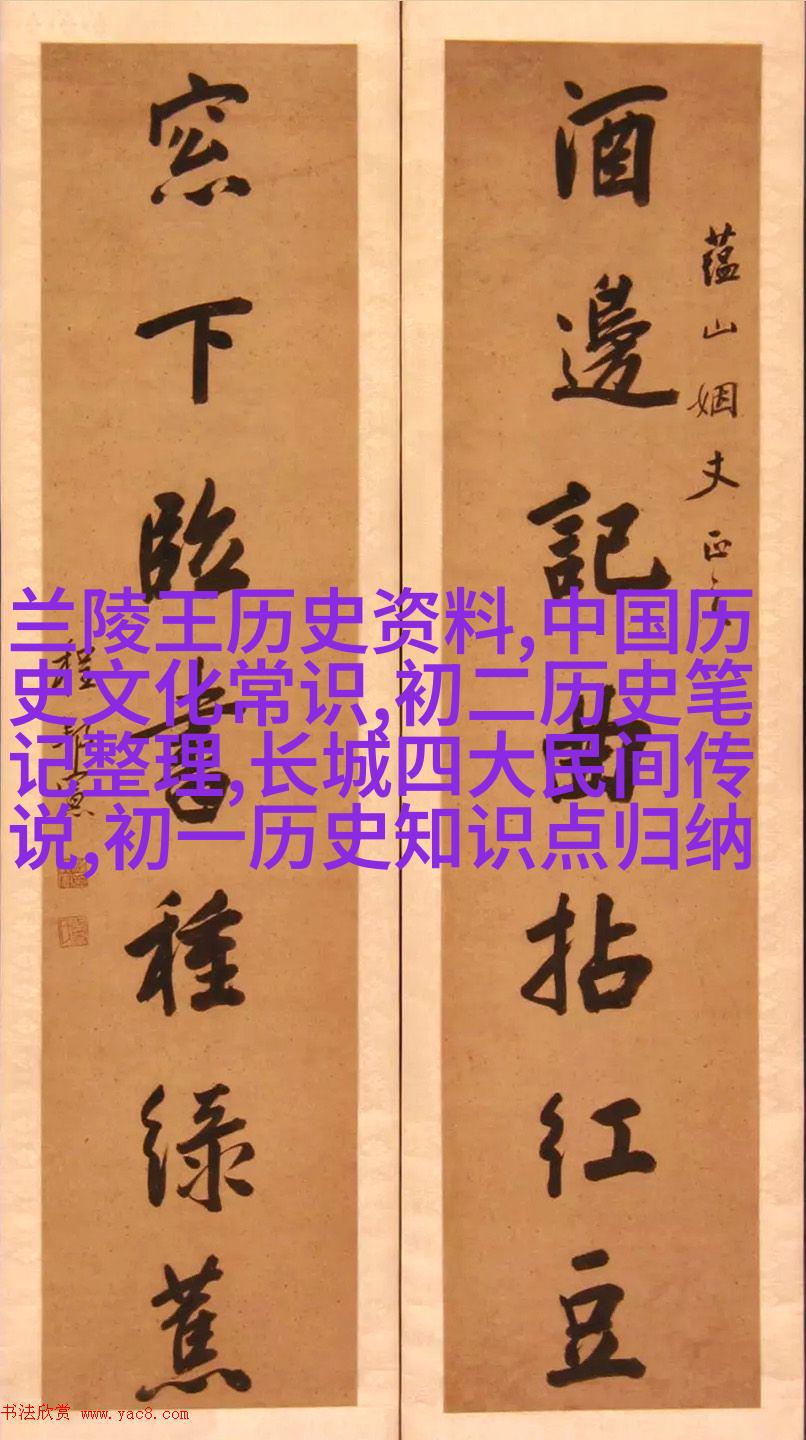 酒邊記曲拈紅豆
蕴山姻丈正之
窓下臨書種綠蕉
程
兰陵王历史资料,中国历
史文化常识,初二历史笔
记整理,长城四大民间传
说,初一历史知识点归纳
书法欣赏 www.yac8.com